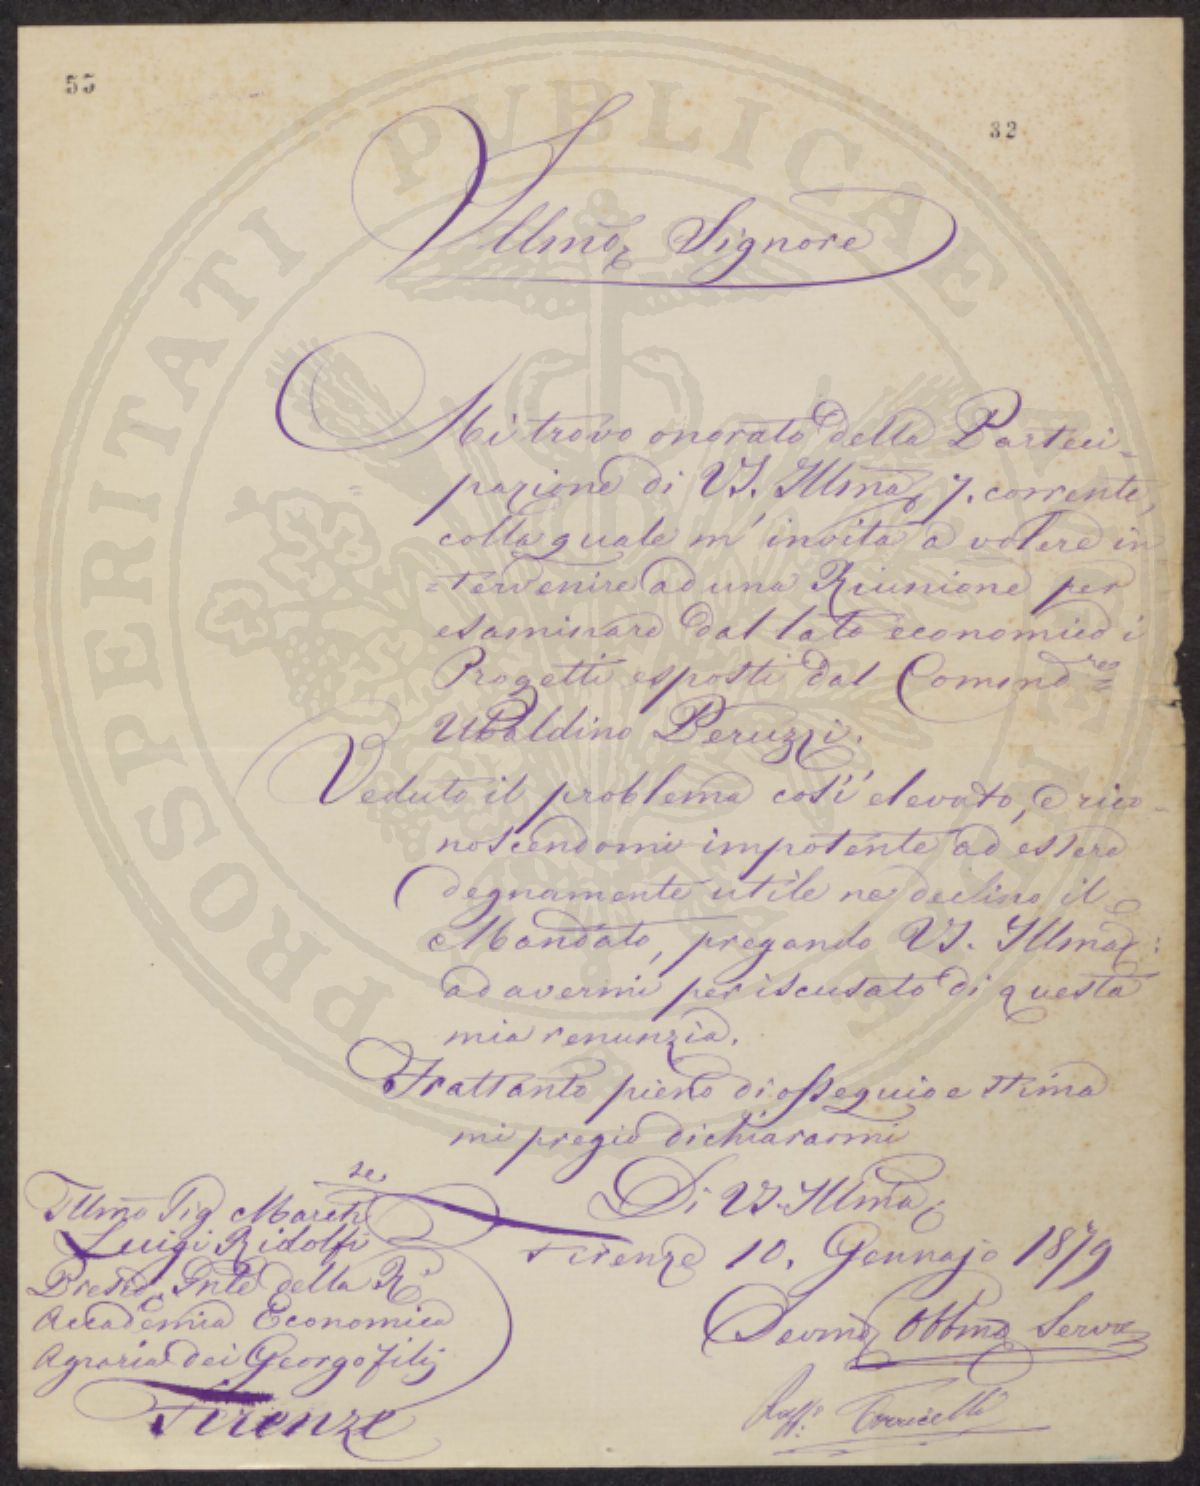 55
32
Illmo Signore
Mi trovo onorato della Parteci-
pazione di V.S. Illma, 7. corrente,
colla quale m' invita a volere in
=tervenire ad una Riunione per
esaminare dal lato economico i
Progetti esposti dal Comend.re
Ubaldino Peruzzi.
Veduto il problema così elevato, e rico-
noscendomi impotente ad essere
degnamente utile ne declino il
Mandato, pregando V.S. Illma:
ad avermi per iscusato di questa
mia renunzia.
Frattanto pieno di ossequio e stima
mi pregio dichiararmi
Di V.S. Illma
Firenze 10. Gennajo 1879
Devmo Obbmo Servo
Raff.o Torricelli
Illmo Sig March.se
Luigi Ridolfi
Presid.nte della R.
Accademia Economico
Agraria dei Georgofili
Firenze
PROSPERITATI PUBLICAE AUGENDAE